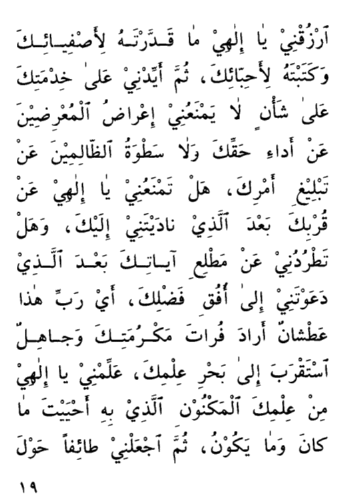 ٱرْزُقْنِيْ يَا إِلٰهِيْ مَا قَدَّرْتَهُ لِأَصْفِيَائِكَ
وَكَتَبْتَهُ لِأَحِبَّائِكَ، ثُمَّ أَيِّدْنِيْ عَلىٰ خِدْمَتِكَ
عَلىٰ شَأْنٍ لَا يَمْنَعُنِيْ إِعْرَاضُ ٱلْمُعْرِضِيْنَ
عَنْ أَدَاءِ حَقِّكَ وَلَا سَطْوَةُ ٱلظَّالِمِيْنَ عَنْ
تَبْلِيْغِ أَمْرِكَ، هَلْ تَمْنَعُنِيْ يَا إِلٰهِيْ عَنْ
قُرْبِكَ بَعْدَ ٱلَّذِيْ نادَيْتَنِيْ إِلَيْكَ، وَهَلْ
تَطْرُدُنِيْ عَنْ مَطْلِعِ آيـاتِـكَ بَعْـدَ ٱلَّـذِيْ
دَعَوْتَنِيْ إِلىٰ أُفُقِ فَضْلِكَ، أَيْ رَبِّ هٰذا
عَطْشانٌ أَرادَ فُراتَ مَكْرُمَتِـكَ وَجـاهِـلٌ
ٱسْتَقْرَبَ إِلىٰ بَحْرِ عِلْمِكَ، عَلِّمْنِيْ يا إِلٰهِيْ
مِنْ عِلْمِكَ ٱلْمَكْنُوْنِ ٱلَّذِيْ بِهِ أَحْيَيْتَ مَا
كانَ وَمَا يَكُوْنُ، ثُمَّ ٱجْعَلْنِيْ طائِفاً حَوْلَ
١٩